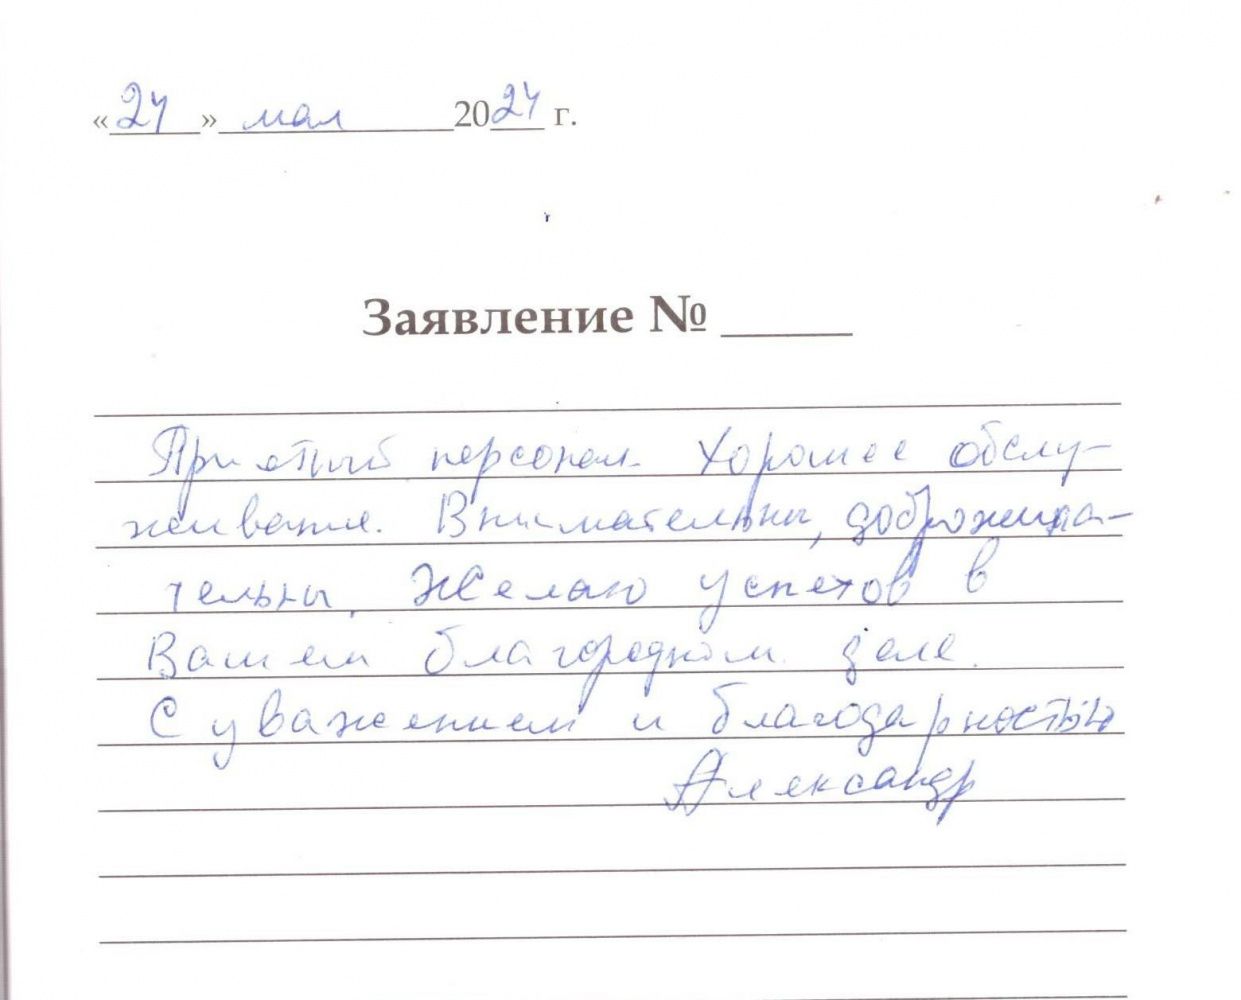 «24» мая 2024 г.
Заявление № ____
Приятный персонал. Хорошее обслу-
живание. Внимательны, доброжела-
тельны. Желаю успехов в
Вашем благородном деле.
С уважением и благодарностью
Александр